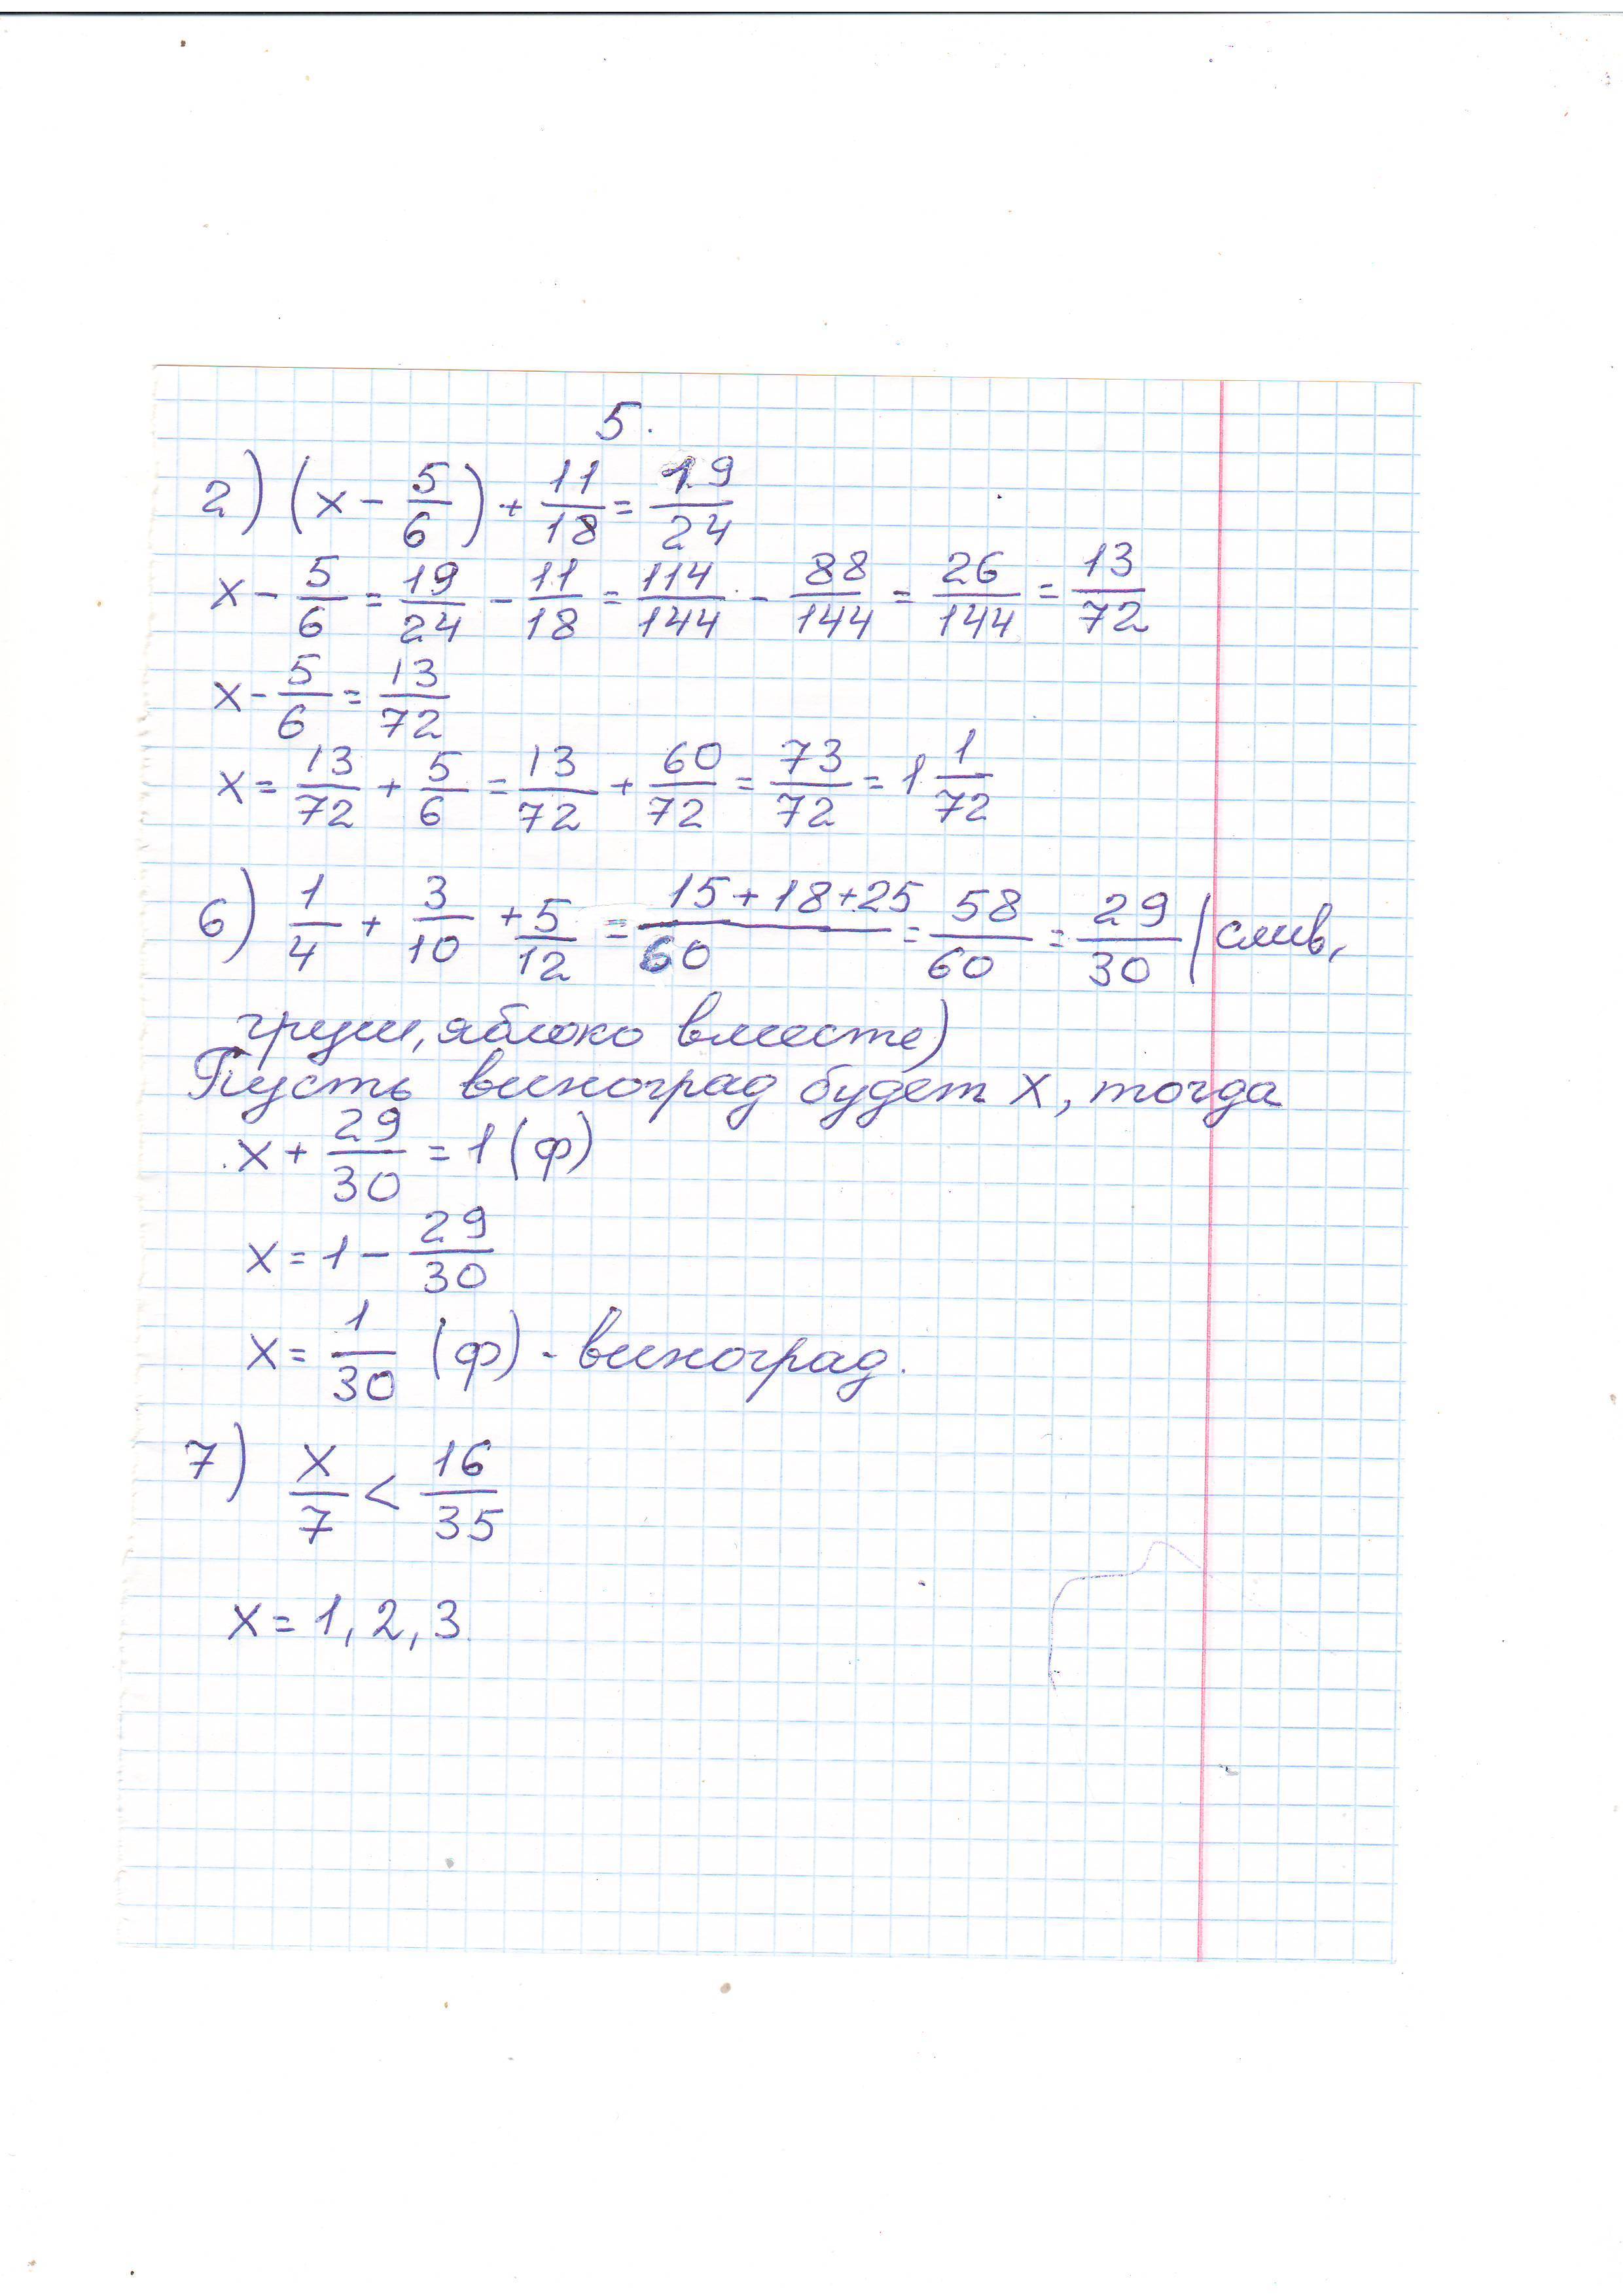 5.
2) (x - 5/6) + 11/18 = 19/24
x - 5/6 = 19/24 - 11/18 = 114/144 - 88/144 = 26/144 = 13/72
x - 5/6 = 13/72
x = 13/72 + 5/6 = 13/72 + 60/72 = 73/72 = 1 1/72
6) 1/4 + 3/10 + 5/12 = 15+18+25/60 = 58/60 = 29/30 (слив,
груш, яблоко вместе)
Пусть виноград будет x, тогда
x + 29/30 = 1 (ф)
x = 1 - 29/30
x = 1/30 (ф) - виноград.
7) x/7 < 16/35
x = 1, 2, 3